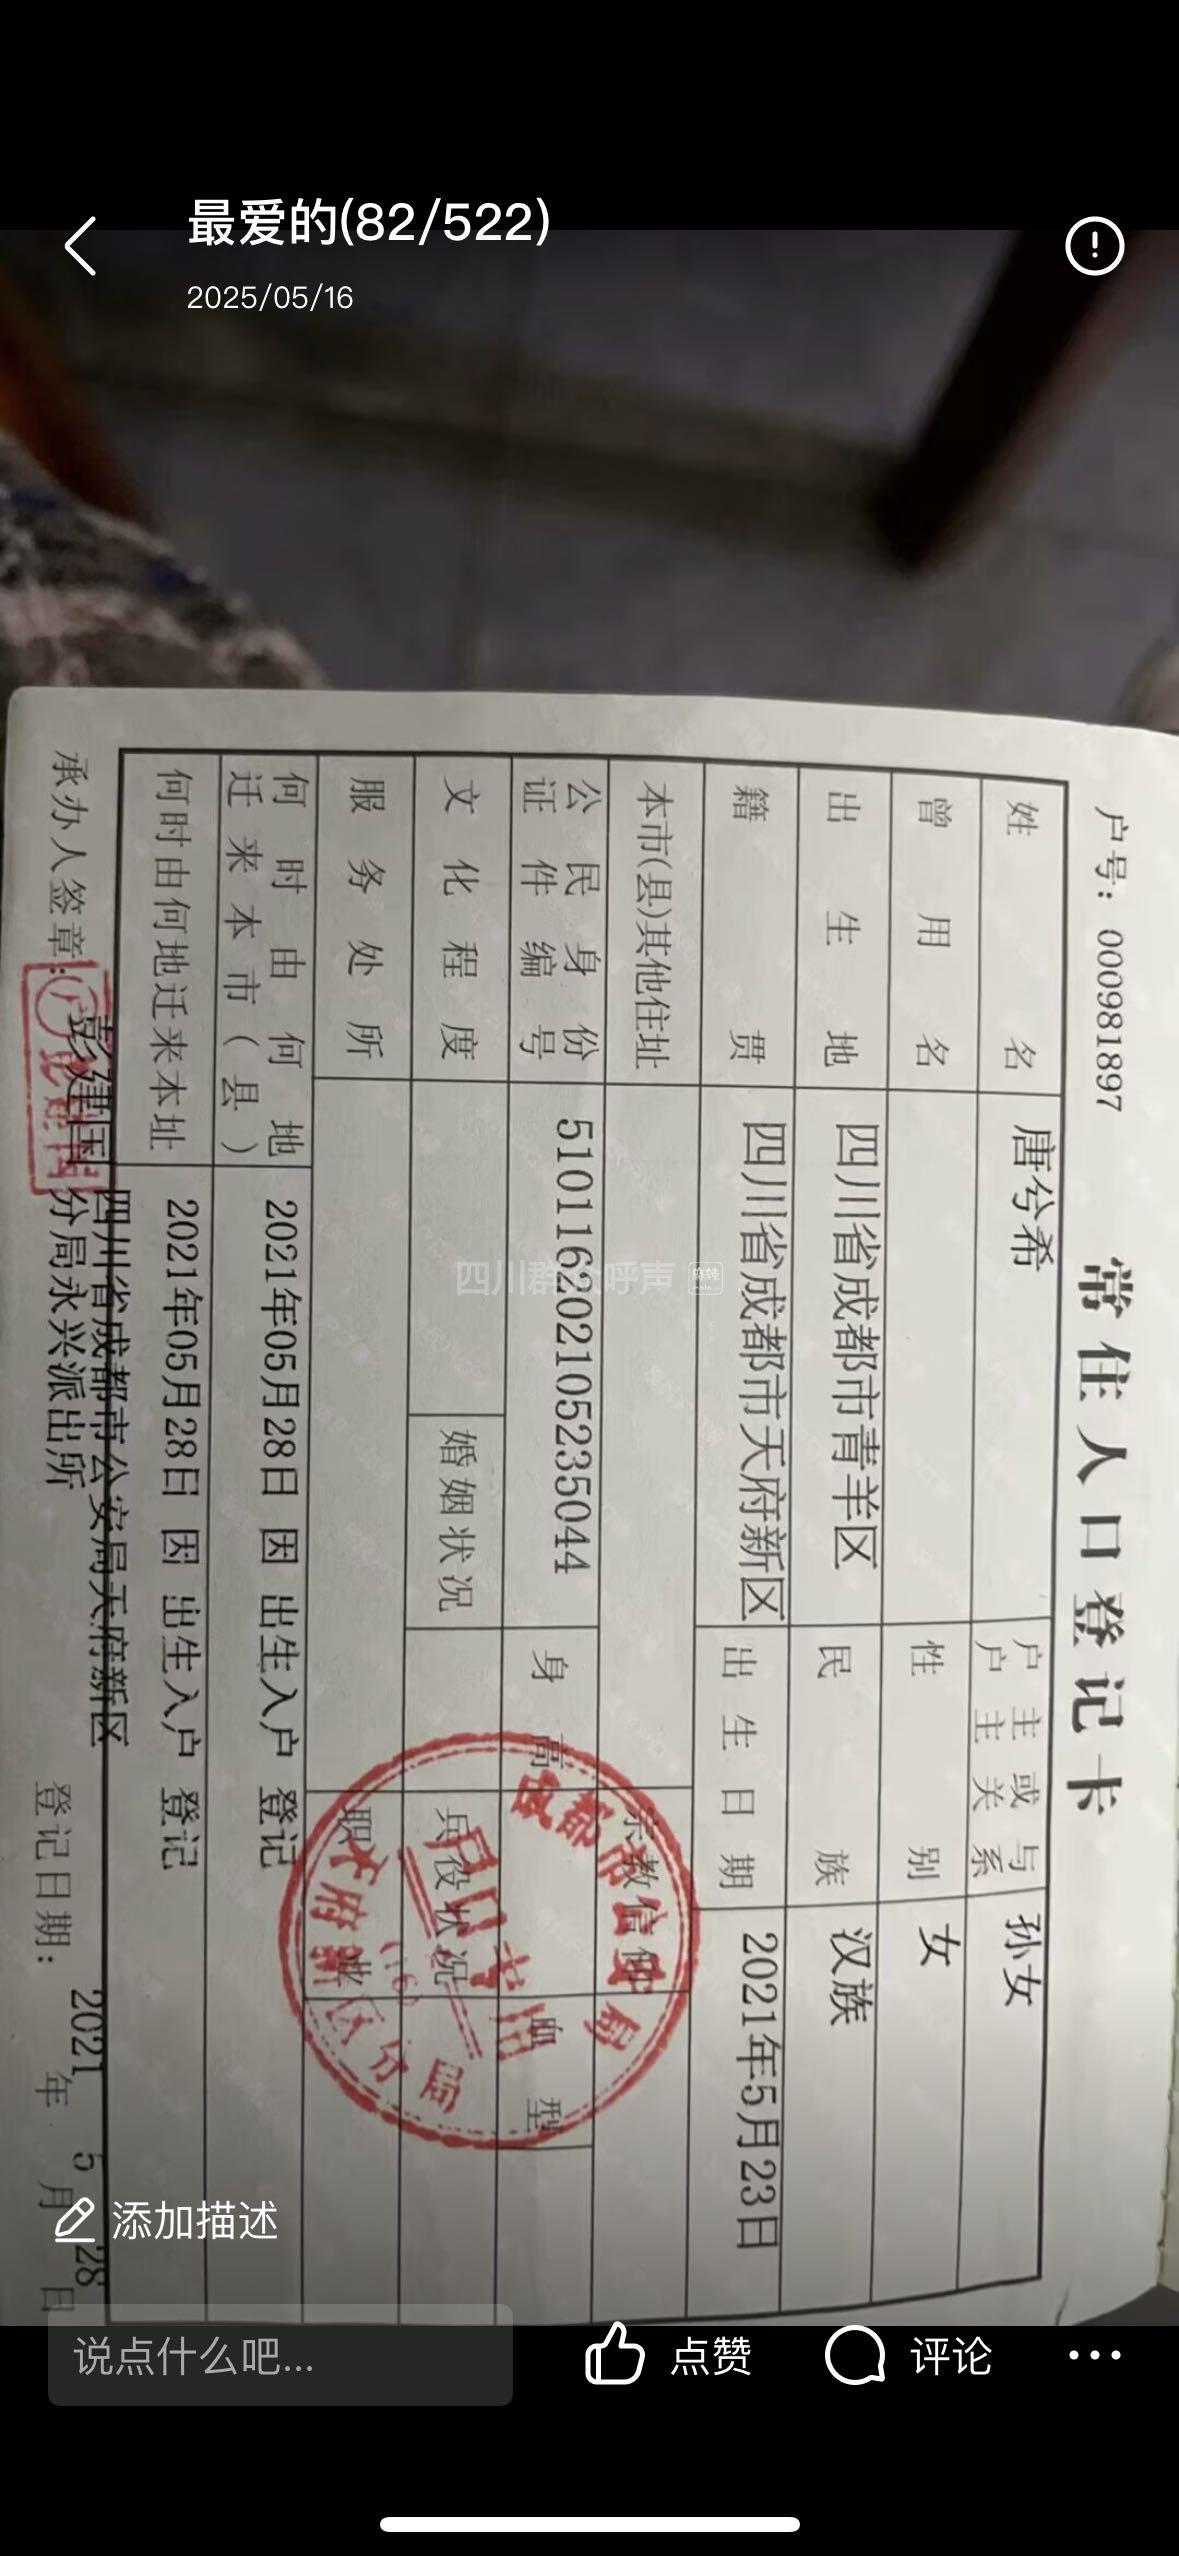 最爱的(82/522)
2025/05/16
户号: 000981897
常住人口登记卡
姓名 唐兮希 户主或与户主关系 孙女
曾用名 性别 女
出生地 四川省成都市青羊区 民族 汉族
籍贯 四川省成都市天府新区 出生日期 2021年5月23日
本市(县)其他住址 宗教信仰
公民身份证件编号 510116202105235044 身高 血型
文化程度 婚姻状况 兵役状况
服务处所 职业
何时由何地迁来本市(县) 2021年05月28日 因 出生入户 登记
何时由何地迁来本址 2021年05月28日 因 出生入户 登记
四川省成都市公安局天府新区
分局永兴派出所
承办人签章: 彭建国 登记日期: 2021年5月28日
户口专用
四川群众呼声 麻辣
添加描述
说点什么吧... 点赞 评论